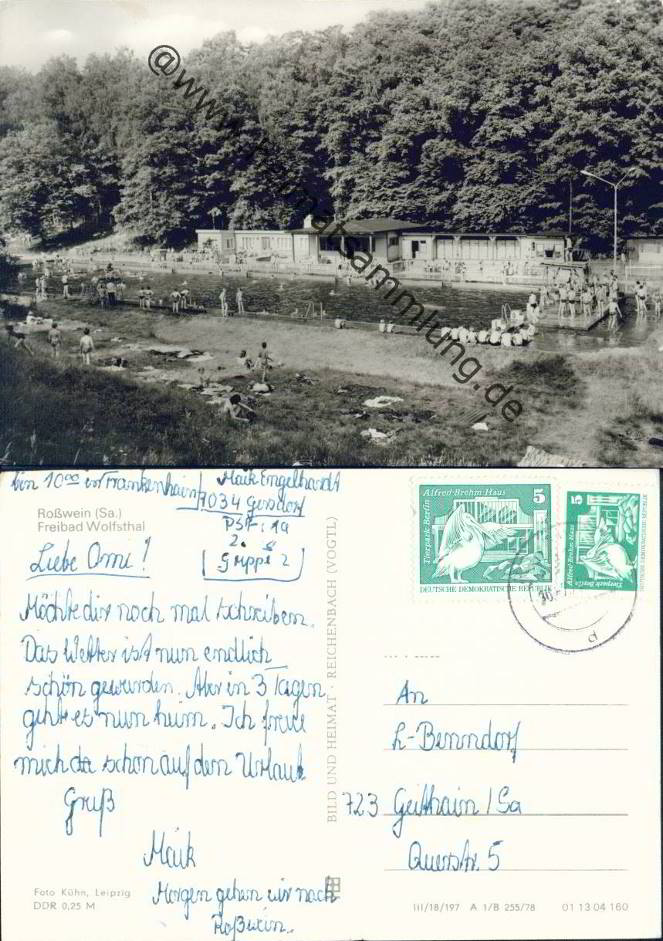 @www.heimatsammlung.de
bin 10⁰⁰ in Frankenhain
Maik Engelhardt
7034 Gondorf
PSF: 19
2.
Gruppe 2
Roßwein (Sa.)
Freibad Wolfsthal
Liebe Omi!
Möchte dir noch mal schreiben.
Das Wetter ist nun endlich
schön geworden. Aber in 3 Tagen
geht es nun heim. Ich freue
mich da schon auf den Urlaub
Gruß
Maik
Morgen gehen wir nach
Roßwein.
Foto Kühn, Leipzig
DDR 0,25 M
BILD UND HEIMAT · REICHENBACH (VOGTL)
Alfred Brehm Haus
5
Tierpark Berlin
DEUTSCHE DEMOKRATISCHE REPUBLIK
5
Alfred Brehm Haus
Tierpark Berlin
DEUTSCHE DEMOKRATISCHE REPUBLIK
d
An
L-Benndorf
723 Geithain / Sa
Querstr. 5
III/18/197 A 1/B 255/78 01 13 04 160